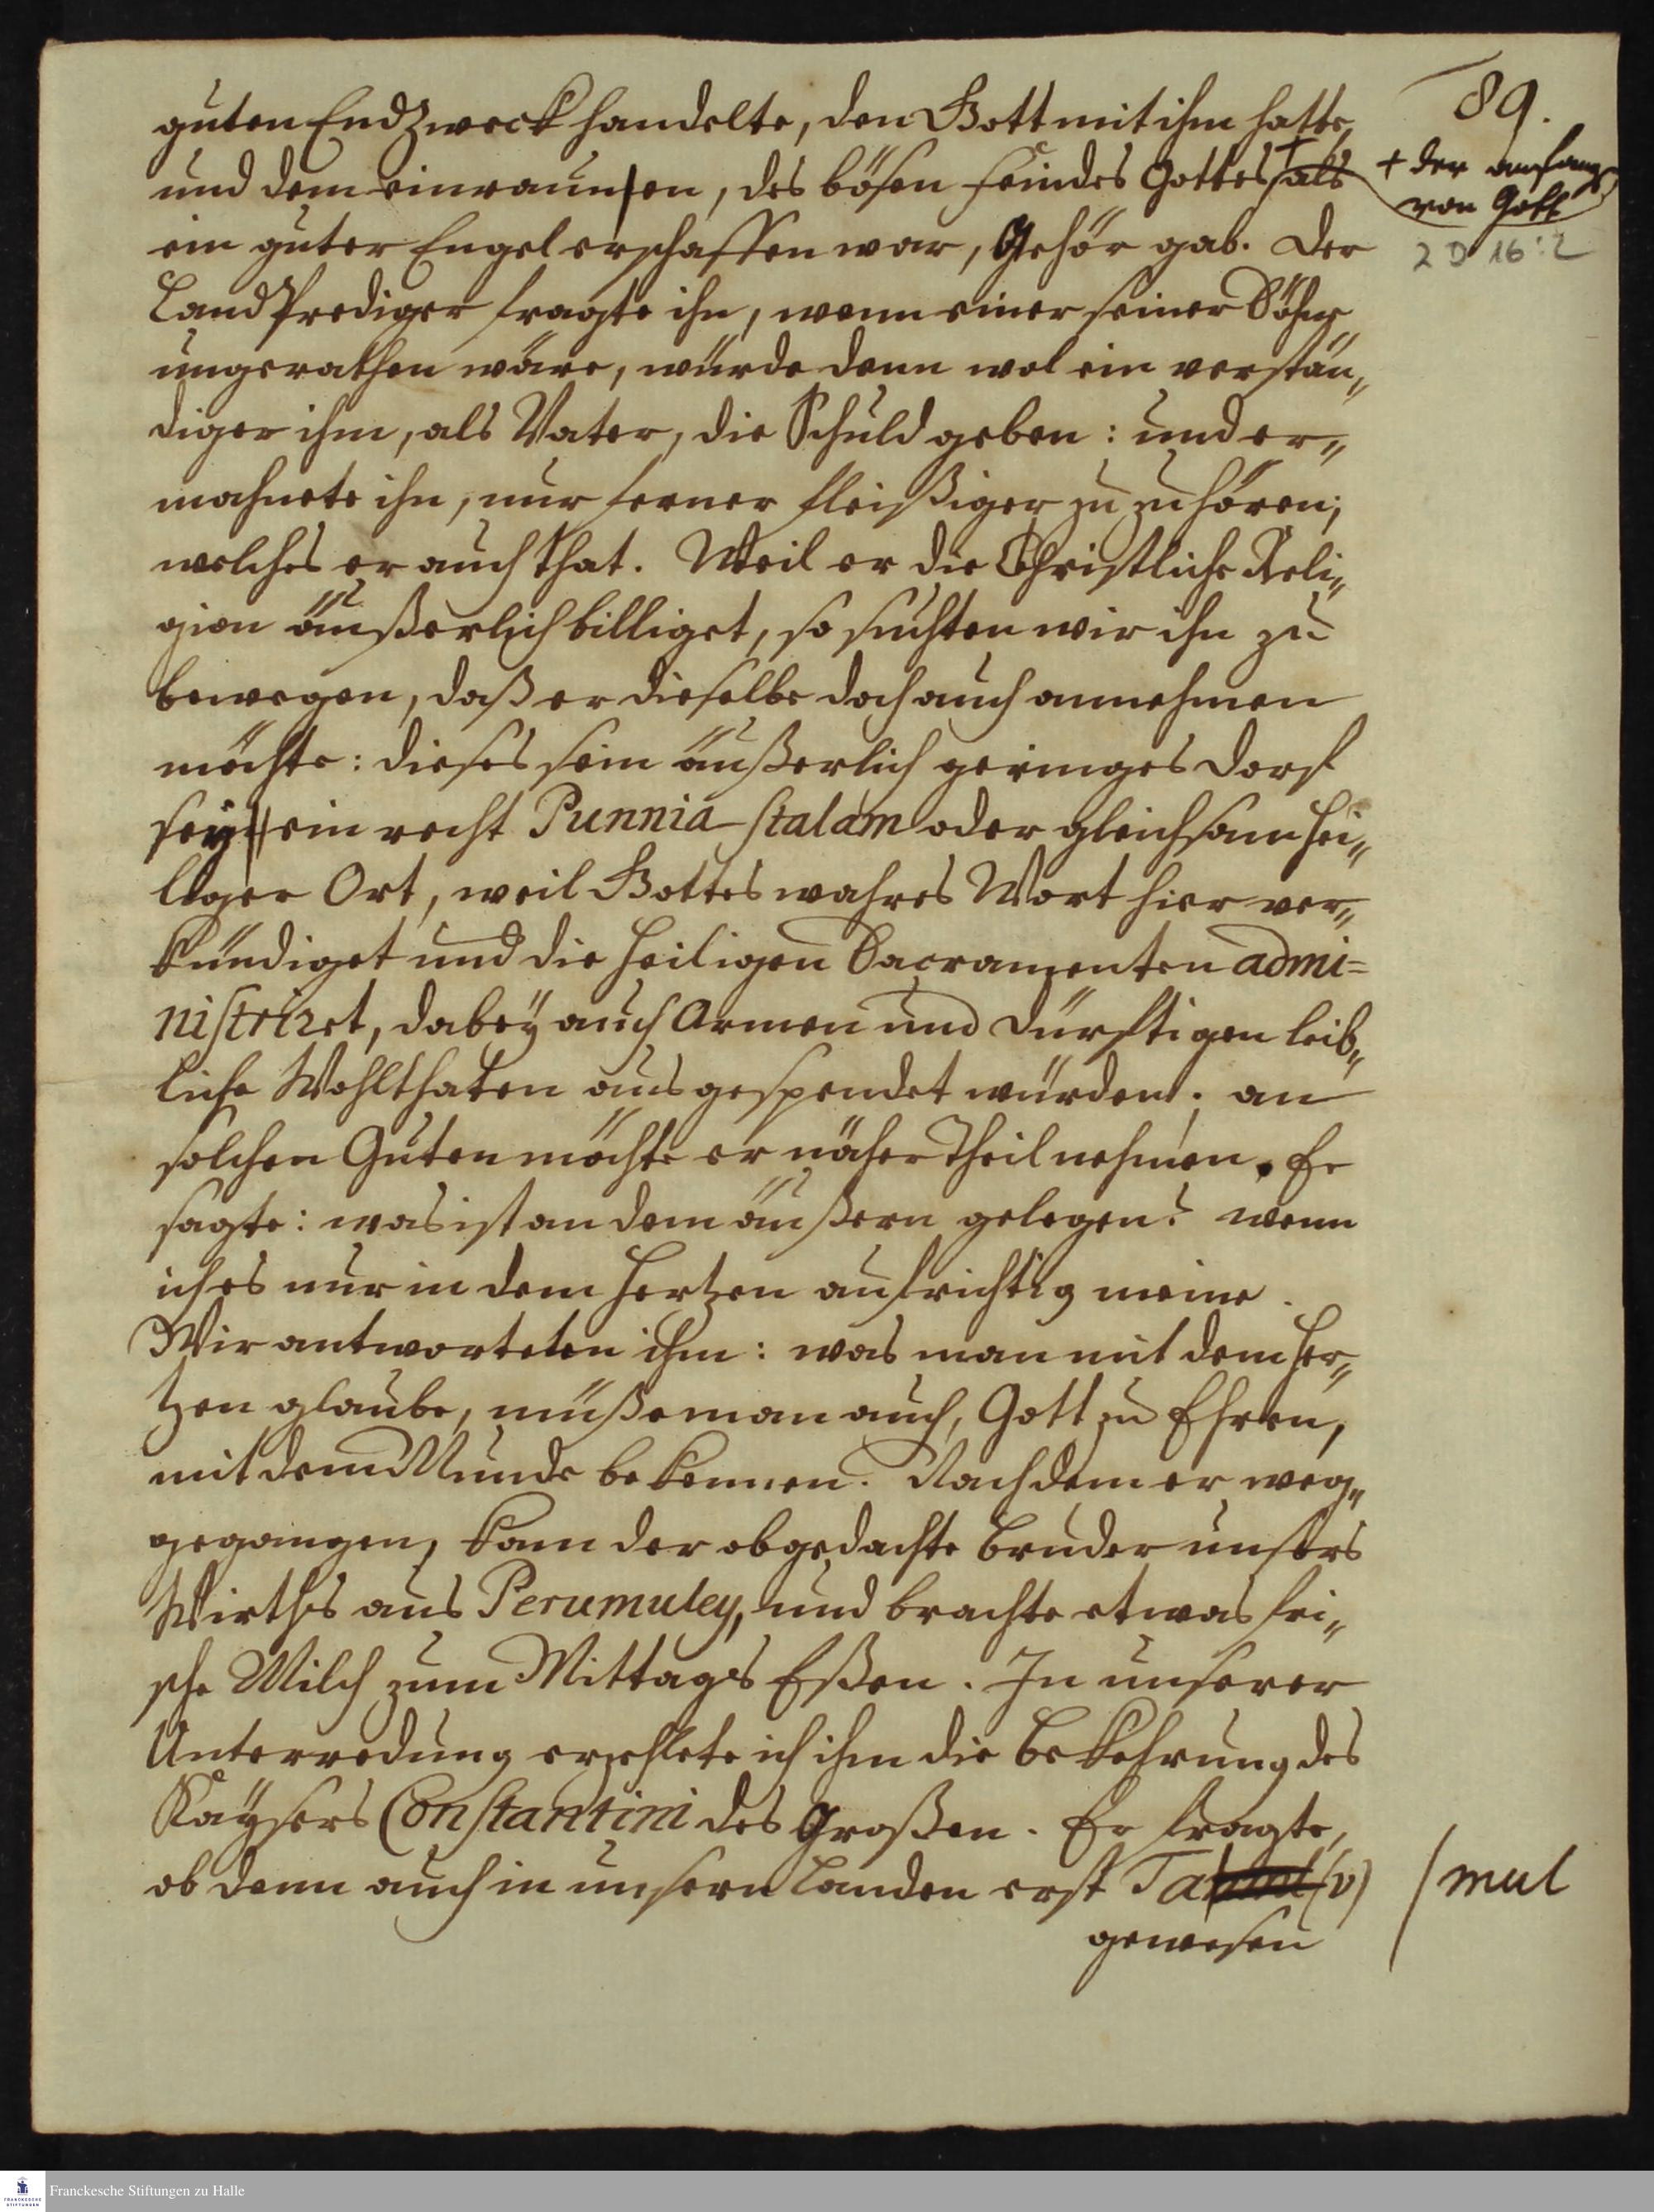 89.
guten EndZweck handelte, den Gott mit ihm hatte,
und dem einraunen, des bösen Feindes Gottes, als
+ der anfangs
von Gott
ein guter Engel erschaffen war, Gehör gab. Der
2 D 16:2
LandPrediger fragte ihn, wenn einer seiner Söhne
ungerathen wäre, würde denn wol ein verstän„
diger ihm, als Vater, die Schuld geben: und er„
mahnete ihn, nur ferner fleißiger zu zu hören;
welches er auch that. Weil er die Christliche Reli„
gion äußerlich billiget, so suchten wir ihn zu
bewegen, daß er dieselbe doch auch annehmen
möchte: dieses sein äußerlich geringes Dorf
sey ein recht Punnia-stalam oder gleichsam hei„
liger Ort, weil Gottes wahres Wort hier ver„
kündiget und die heiligen Sacramenten admi=
nistriret, dabey auch Armen und Dürftigen leib„
liche Wohlthaten ausgespendet würden; an
solchen Guten möchte er näher Theil nehmen. Er
sagte: was ist an dem äußern gelegen? wenn
ich es nur in dem Hertzen aufrichtig meine.
Wir antworteten ihm: was man mit dem Her„
tzen glaube, müße man auch, Gott zu Ehren,
mit dem Munde bekennen. Nachdem er weg„
gegangen, kam der obgedachte Bruder unsers
Wirthes aus Perumuley, und brachte etwas fri„
sche Milch zum Mittags Eßen. In unserer
Unterredung erzehlete ich ihm die Bekehrung des
Kaysers Constantini des Großen. Er fragte,
ob denn auch in unsern Landen erst Ta (v)
/ mul
gewesen
Franckesche Stiftungen zu Halle